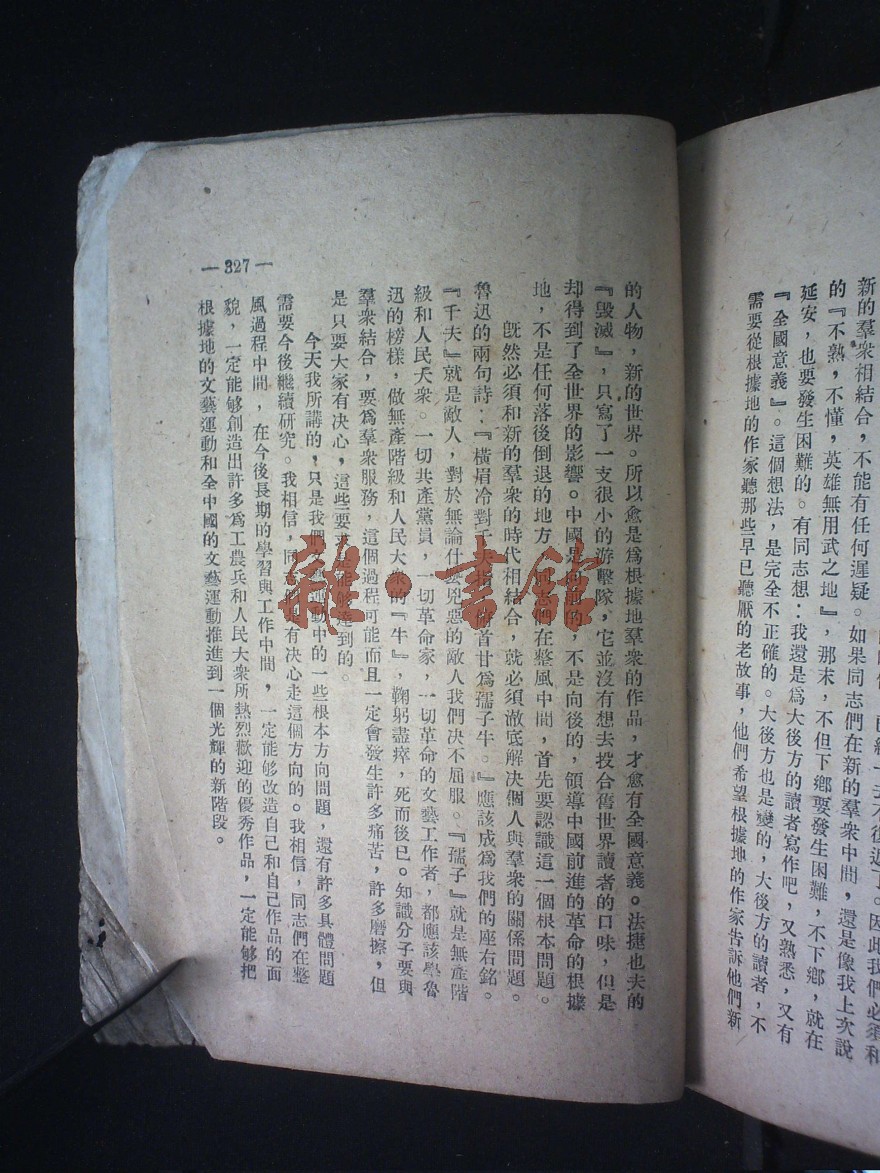 新的羣衆相結合，不能有任何遲疑。如果同志們在新的羣衆中間，還是像我上次說
的『不熟，不懂，英雄無用武之地』，那末，不但下鄉要發生困難，不下鄉，就在
延安，也要發生困難的。有同志想：我還是爲大後方的讀者寫作吧，又熟悉，又有
『全國意義』。這個想法，是完全不正確的。大後方也是變的，大後方的讀者，不
需要從根據地的作家聽那些早已聽厭的老故事，他們希望根據地的作家告訴他們新
的人物，新的世界。所以愈是爲根據地羣衆的作品，才愈有全國意義。法捷也夫的
『毀滅』，只寫了一支很小的游擊隊，它並沒有想去投合舊世界讀者的口味，但是
却得到了全世界的影響。中國是向前的，不是向後的，領導中國前進的革命的根據
地，不是任何落後倒退的地方，同志們在整風中間，首先要認識這一個根本問題。
旣然必須和新的羣衆的時代相結合，就必須澈底解決個人與羣衆的關係問題。
魯迅的兩句詩：『橫眉冷對千夫指，俯首甘爲孺子牛。』應該成爲我們的座右銘。
『千夫』就是敵人，對於無論什麽兇惡的敵人我們決不屈服。『孺子』就是無產階
級和人民大衆。一切共產黨員，一切革命家，一切革命的文藝工作者，都應該學魯
迅的榜樣，做無產階級和人民大衆的『牛』，鞠躬盡瘁，死而後已。知識分子要與
羣衆結合，要爲羣衆服務，這個過程可能而且一定會發生許多痛苦，許多磨擦，但
是只要大家有决心，這些要求是能够達到的。
今天我所講的，只是我們文藝運動中的一些根本方向問題，還有許多具體問題
需要今後繼續研究。我相信，同志們是有决心走這個方向的。我相信，同志們在整
風過程中間，在今後長期的學習與工作中間，一定能够改造自己和自己作品的面
貌，一定能够創造出許多爲工農兵和人民大衆所熱烈歡迎的優秀作品，一定能够把
根據地的文藝運動和全中國的文藝運動推進到一個光輝的新階段。
— 327 —
雜·書館